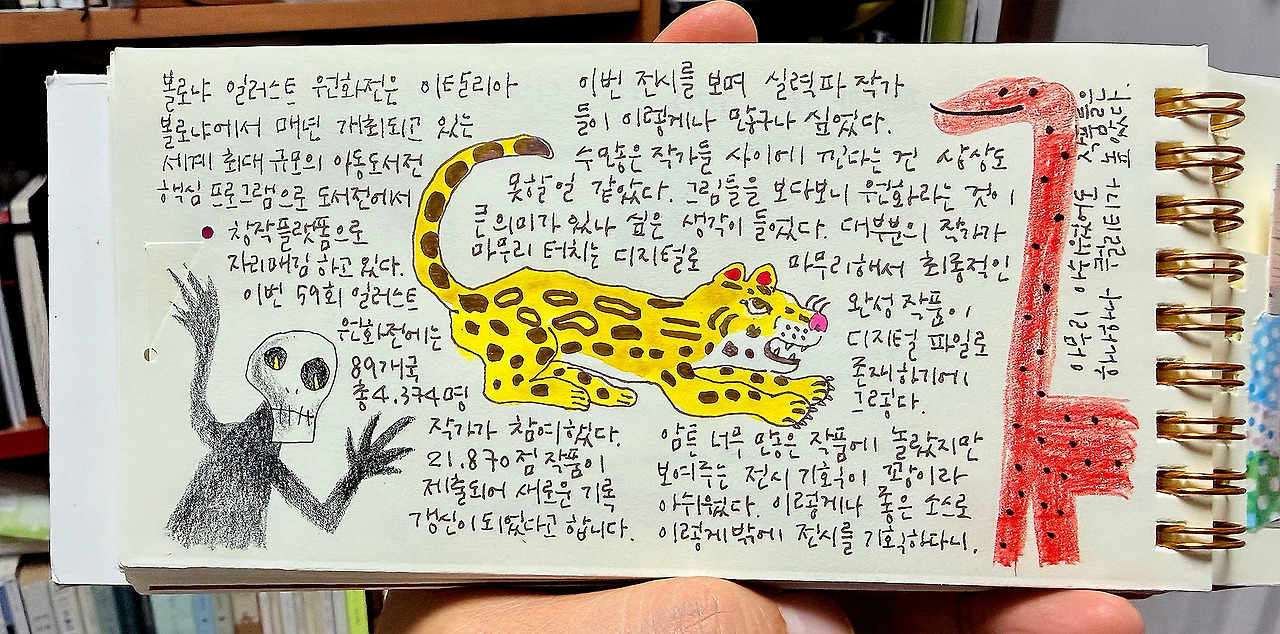 볼로냐 일러스트 원화전은 이탈리아
볼로냐에서 매년 개최되고 있는
세계 최대 규모의 아동도서전
핵심 프로그램으로 도서전에서
창작플랫폼으로
자리매김 하고 있다.
이번 59회 일러스트
원화전에는
89개국
총 4.374명
작가가 참여했다.
21.870점 작품이
제출되어 새로운 기록
갱신이 되었다고 합니다.
이번 전시를 보며 실력파 작가
들이 이렇게나 많구나 싶었다.
수많은 작가들 사이에 낀다는 건 상상도
못할 일 같았다. 그림들을 보다보니 원화라는 것이
큰 의미가 있나 싶은 생각이 들었다. 대부분의 작가가
마무리 터치는 디지털로 마무리해서 최종적인
완성 작품이
디지털 파일로
존재하기에
그렇다.
암튼 너무 많은 작품에 놀랐지만
보여주는 전시 기획이 꽝이라
아쉬웠다. 이렇게나 좋은 소스로
이렇게밖에 전시를 기획하다니.